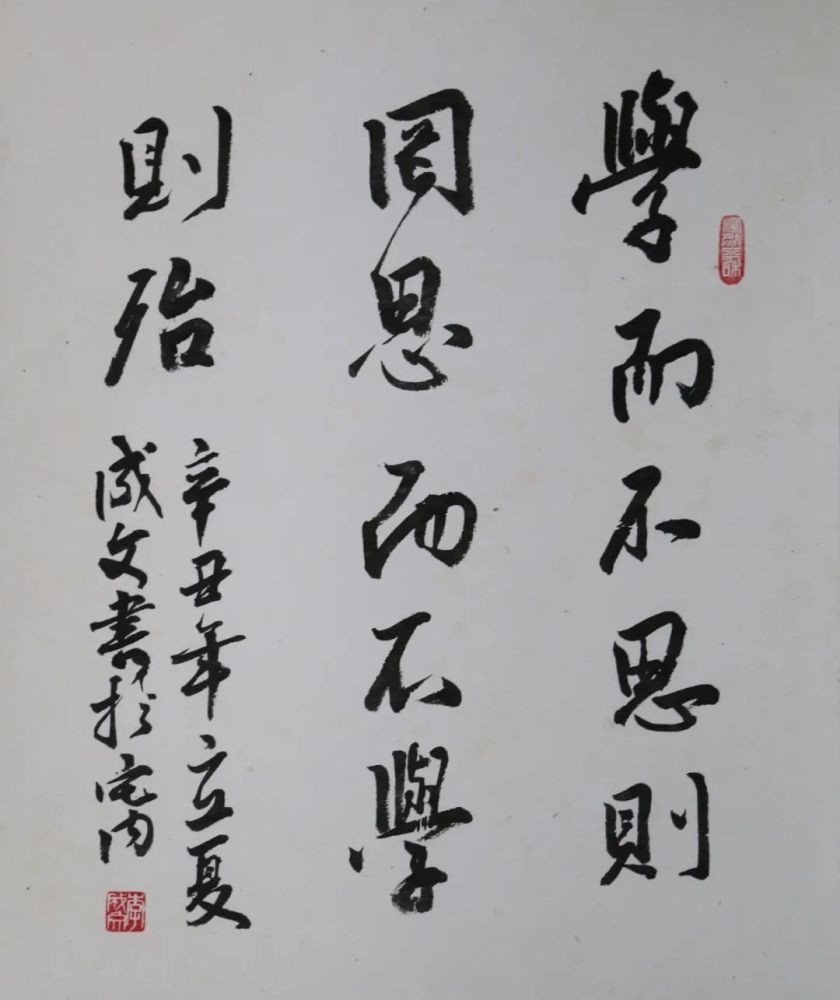 學而不思則
罔思而不學
則殆
辛丑年立夏
成文書於宅內